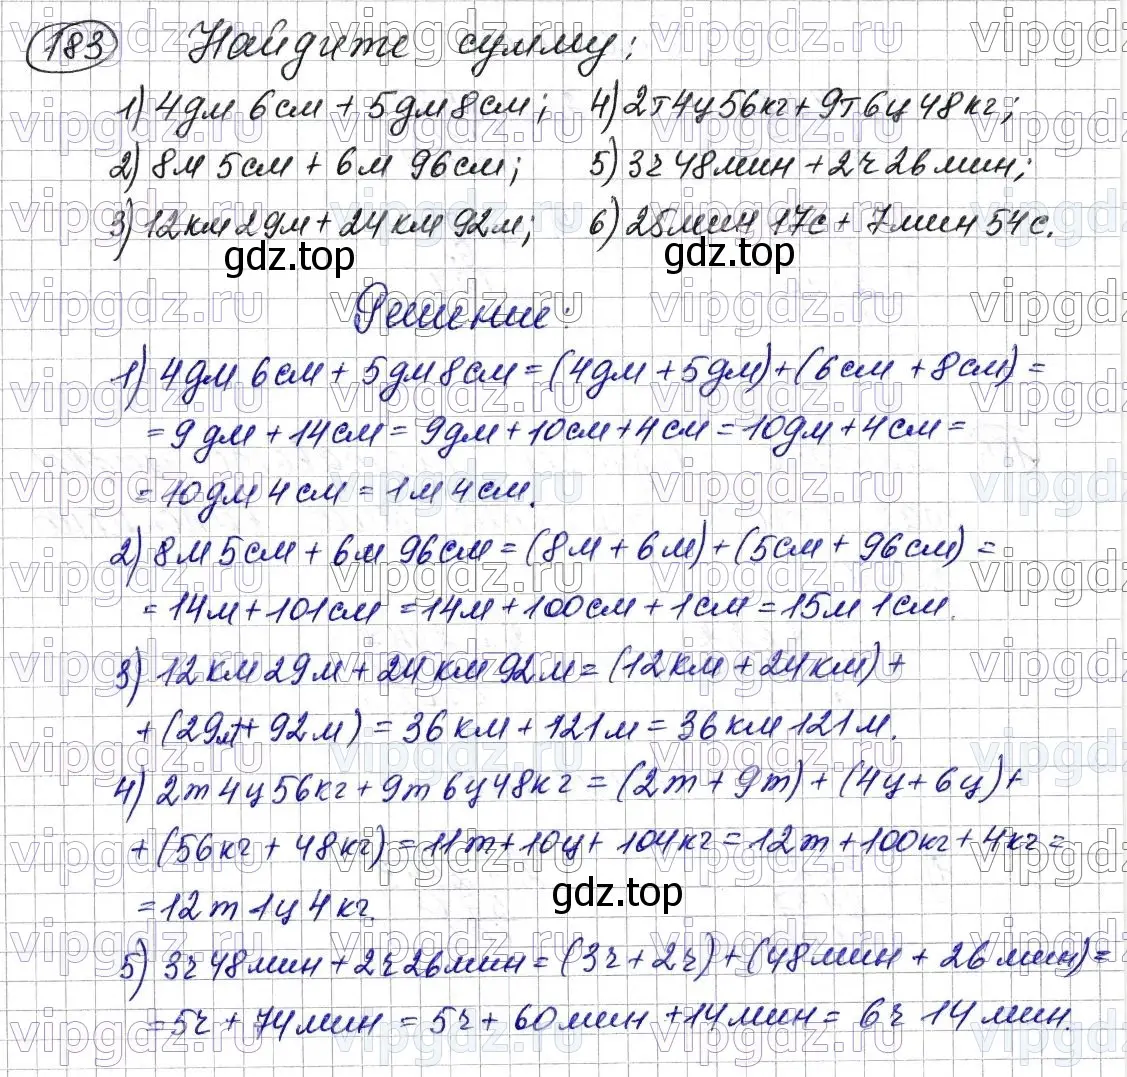 183 Найдите сумму:
1) 4дм 6см + 5дм 8см; 4) 2т 4ц 56кг + 9т 6ц 48кг;
2) 8м 5см + 6м 96см; 5) 3ч 48мин + 2ч 26мин;
3) 12км 29м + 24км 92м; 6) 25мин 17с + 7мин 54с.
gdz.top gdz.top
Решение:
1) 4дм 6см + 5дм 8см = (4дм + 5дм) + (6см + 8см) =
= 9дм + 14см = 9дм + 10см + 4см = 10дм + 4см =
= 10дм 4см = 1м 4см.
2) 8м 5см + 6м 96см = (8м + 6м) + (5см + 96см) =
= 14м + 101см = 14м + 100см + 1см = 15м 1см.
3) 12км 29м + 24км 92м = (12км + 24км) +
+ (29м + 92м) = 36км + 121м = 36км 121м.
4) 2т 4ц 56кг + 9т 6ц 48кг = (2т + 9т) + (4ц + 6ц) +
+ (56кг + 48кг) = 11т + 10ц + 104кг = 12т + 100кг + 4кг =
= 12т 1ц 4кг.
gdz.top
5) 3ч 48мин + 2ч 26мин = (3ч + 2ч) + (48мин + 26мин) =
= 5ч + 74мин = 5ч + 60мин + 14мин = 6ч 14мин.
vipgdz.ru